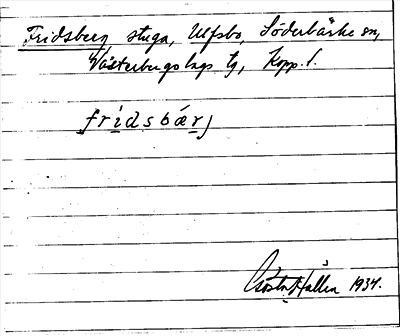 Fridsberg stuga, Ulfsbo, Söderbärke sn,
Västerbergslags tg, Kopp. l.
fridsbærj
Gösta Hallén 1934.